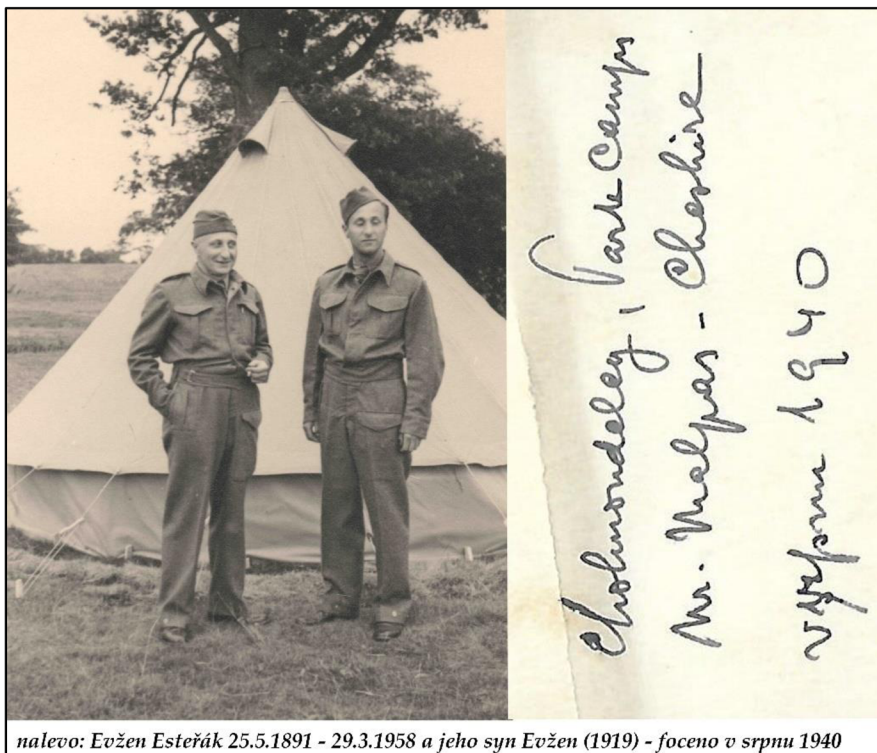 Cholmondeley, Park Camp
Nr. Malpas - Cheshire
v srpnu 1940
nalevo: Evžen Esteřák 25.5.1891 - 29.3.1958 a jeho syn Evžen (1919) - foceno v srpnu 1940